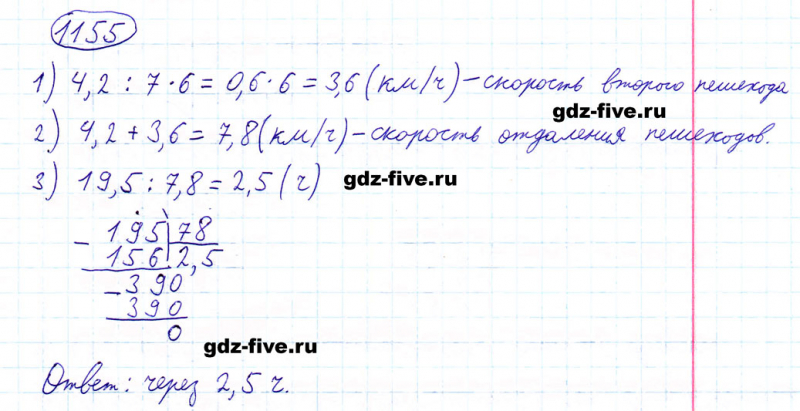 1155
1) 4,2 : 7 · 6 = 0,6 · 6 = 3,6 (км/ч) – скорость второго пешехода
gdz-five.ru
2) 4,2 + 3,6 = 7,8 (км/ч) – скорость отдаления пешеходов.
3) 19,5 : 7,8 = 2,5 (ч)
gdz-five.ru
195 78
– 156 2,5
– 390
390
0
gdz-five.ru
Ответ: через 2,5 ч.